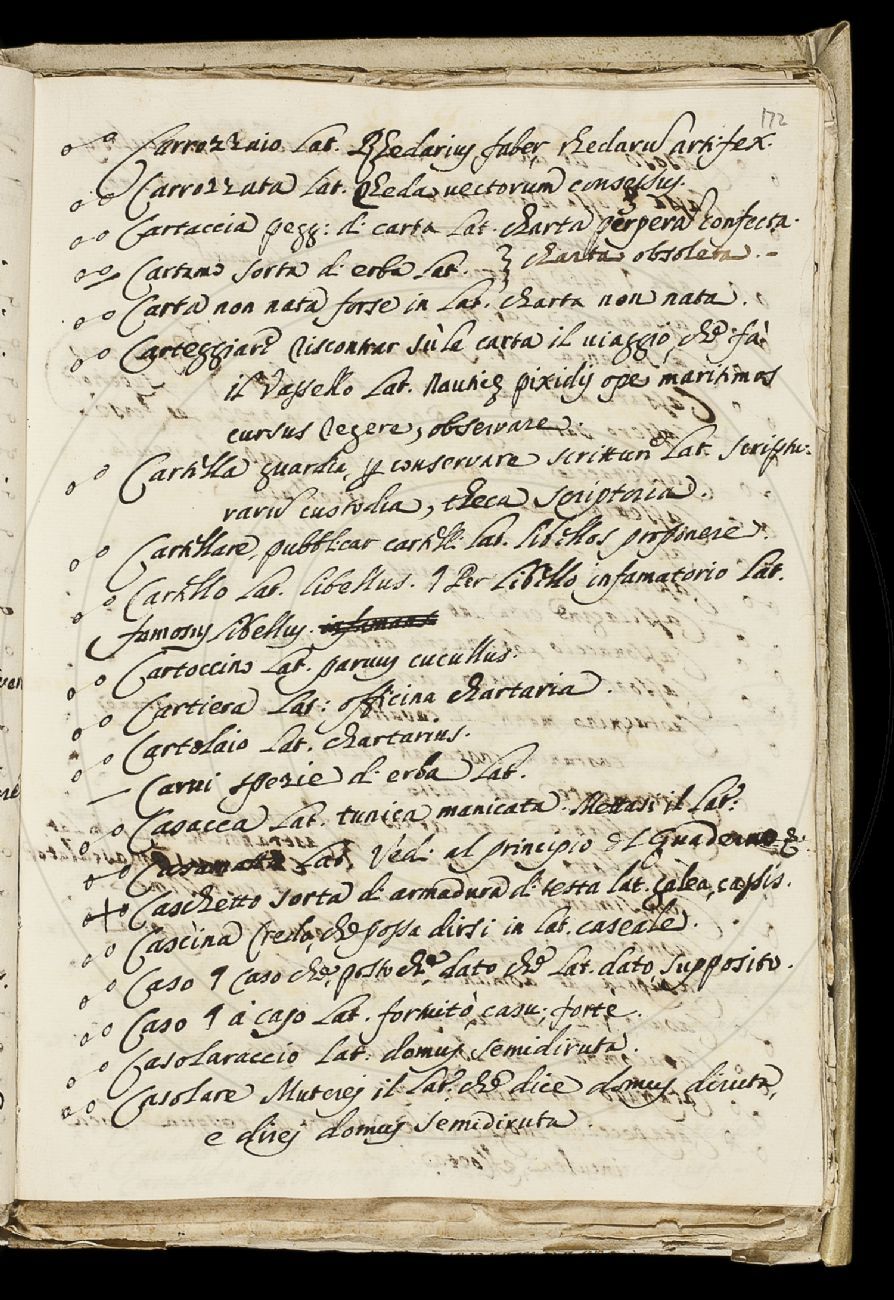 172
Carrozzaio Lat. Rhedarius faber, rhedarũ artifex.
Carrozzata Lat. rheda vectorum consessus.
Cartaccia pegg: di carta Lat. charta perpera confecta.
Cartamo sorta di erba Lat. — } charta obsoleta. –
Carta non nata forse in Lat. charta non nata.
Carteggiare riscontrar sù la carta il viaggio, che fà
il Vassello Lat. nauticę pixidis ope maritimos
cursus regere, observare.
Cartella guardia, p conservare scritture Lat. scriptu-
rarũ custodia, theca scriptoria.
Cartellare, pubblicar cartelli Lat. libellos proponere.
Cartello Lat. libellus. ¶ Per libello infamatorio Lat.
famosus libellus.
Cartoccino Lat. parvus cucullus.
Cartiera Lat: officina chartaria.
Cartolaio Lat. chartarius.
Carui spezie di erba Lat.
Casacca Lat. tunica manicata. Mettasi il Lat:
Casamatta Lat. Vedi al principio del Quaderno
Caschetto sorta di armadura di testa lat. galea, cassis.
Cascina credo, che possa dirsi in lat. caseale.
Caso ¶ Caso che, posto che, dato che Lat. dato, supposito.
Caso ¶ à caso Lat. fortuitò, casu, forte.
Casolaraccio Lat. domus semidiruta.
Casolare Muterej il Lat. che dice domus diruta,
e direj domus semidiruta.